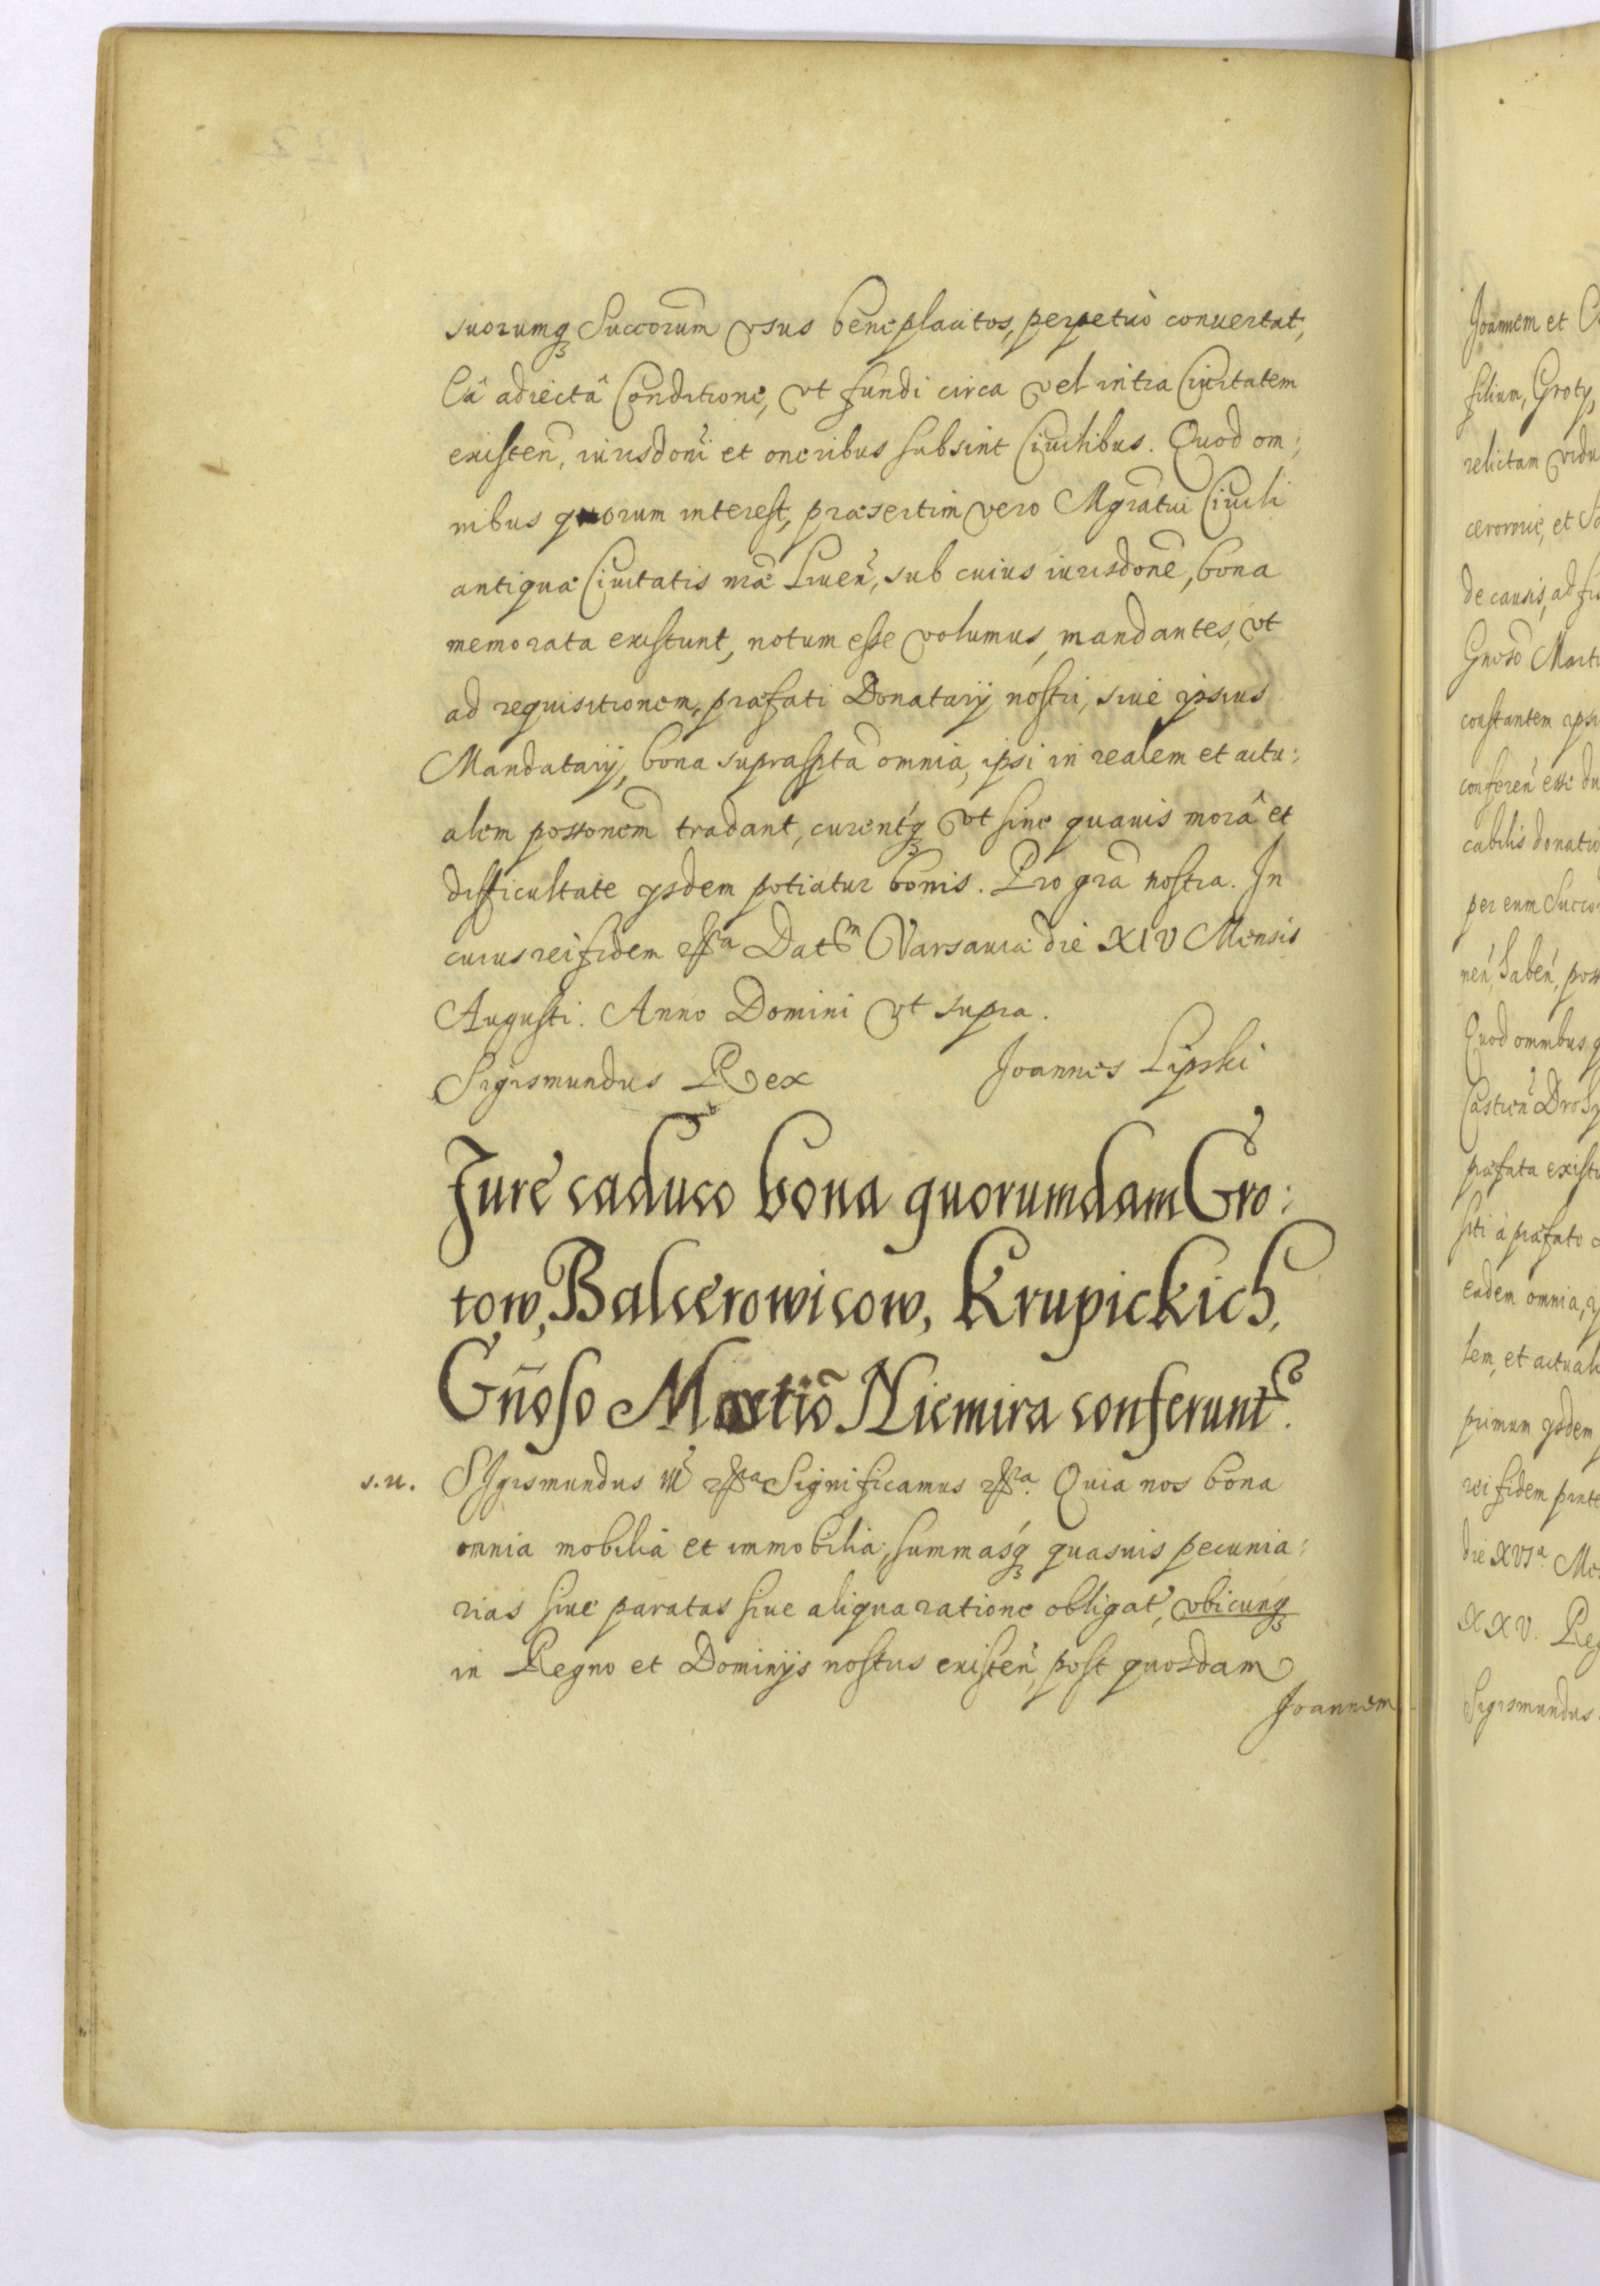 suorumq₃ Succorum vsus beneplacitos, perpetuò conuertat,
Eâ adiectâ Conditione, vt fundi circa vel intra Ciuitatem
existen̄, iurisdoni et oneribus subsint Ciuilibus. Quod om:
nibus quorum interest, præsertim vero Mgratui Ciuili
antiquæ Ciuitatis nræ Liuen̄, sub cuius iurisdone, bona
memorata existunt, notum esse volumus, mandantes, vt
ad requisitionem, præfati Donatarij nostri, siue ipsius
Mandatarij, bona suprasspta omnia, ipsi in realem et actu:
alem possonem tradant, curentq₃ vt sine quauis morâ et
difficultate ysdem potiatur bonis. Pro gra nostra. In
cuius rei fidem &ra Datm Varsauiæ die XIV Mensis
Augusti. Anno Domini vt supra.
Sigismundus Rex Joannes Lipski
Jure caduco bona quorumdam Gro:
tow, Balcerowicow, Krupickich,
Gn̄oso Martio Niemira conferunt.
s.u. SIgismundus III &ra Significamus &ra. Quia nos bona
omnia mobilia et immobilia, summasq₃ quasuis pecunia:
rias siue paratas siue aliqua ratione obligat, vbicunq₃
in Regno et Dominijs nostris existen̄, post quosdam
Joannem
Joannem et
filium, Groty,
relictam vidu
cerowic, et
de causis, ad
Gnoso Marti
constantem ipsi
conferen̄ esse du
cabilis donatio
per eum Succo
nen̄, haben̄, poss
Quod omnibus q
Castren̄ Drohi
præfata existu
siti à præfato
eadem omnia,
lem, et actuale
primum ysdem
rei fidem prnte
die XVIa. Me
XXV. Reg
Sigismundus